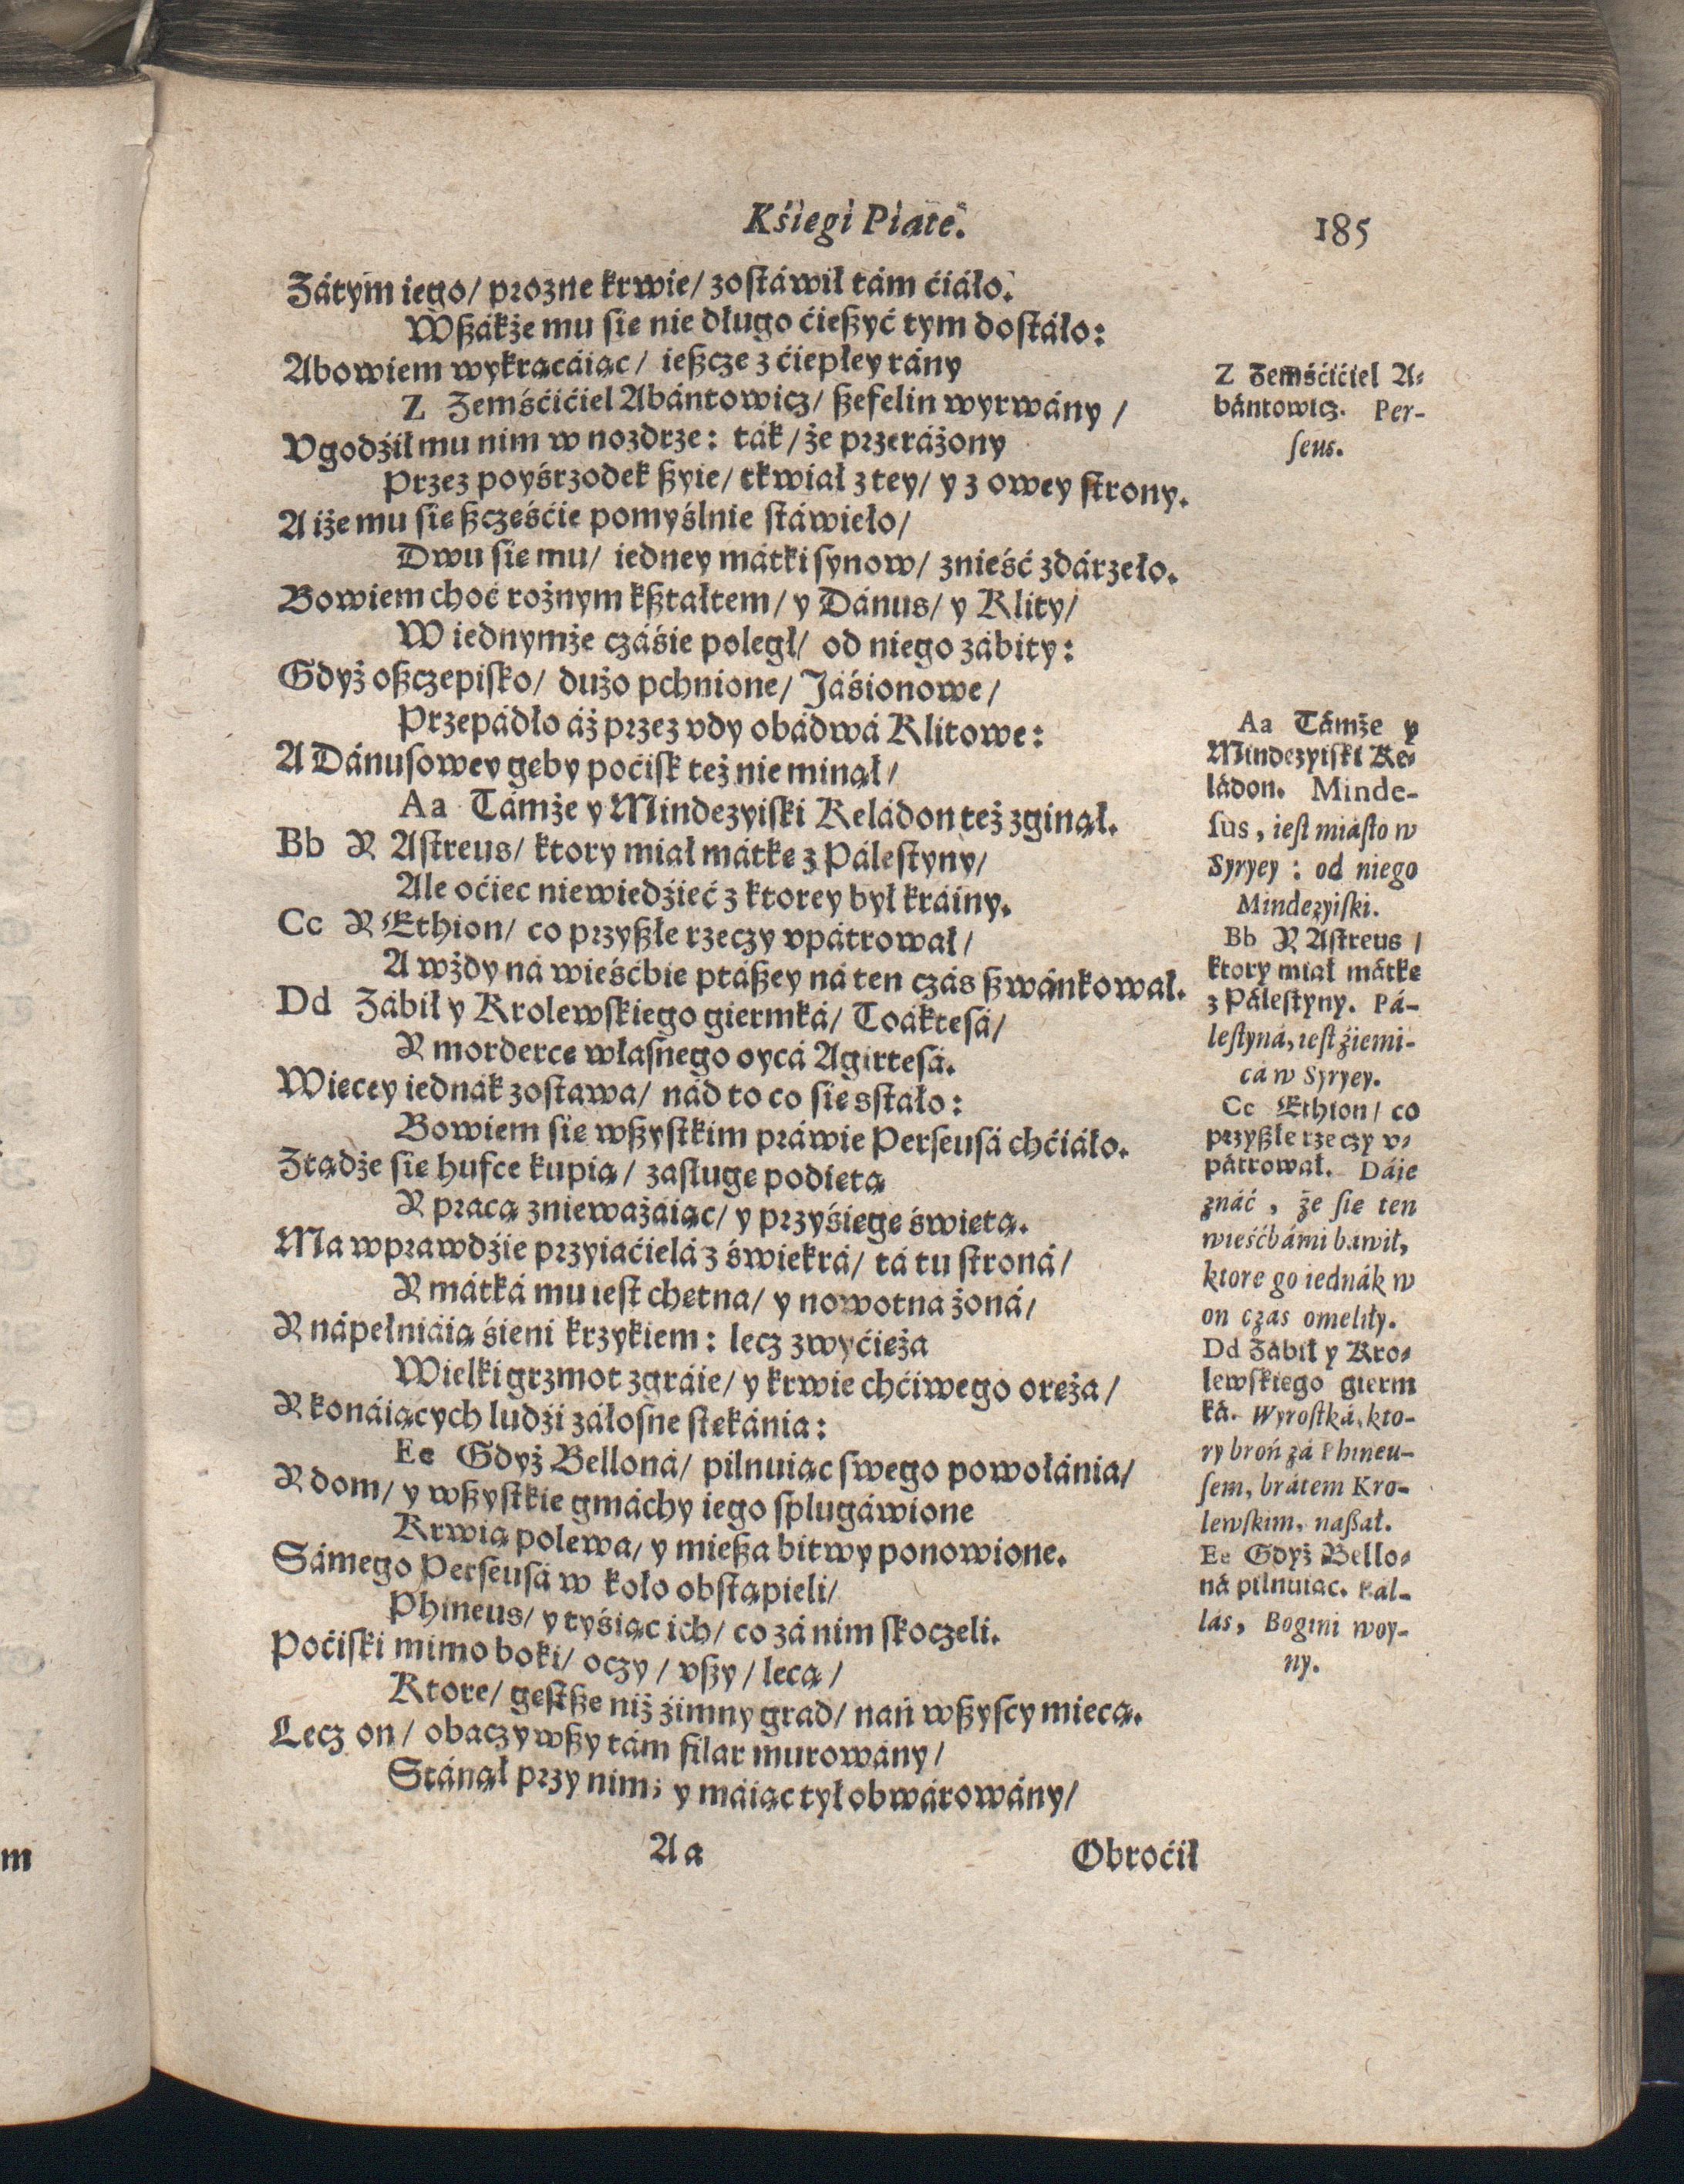 Kśiegi Piate.
185
Zátym iego/ prozne krwie/ zostáwił tám ćiáło.
Wßákże mu sie nie długo ćießyć tym dostáło:
Abowiem wykrącáiąc/ ießcze z ćiepłey rány
Z Zemśćićiel Abántowicz/ ßefelin wyrwány /
Vgodźił mu nim w nozdrze: ták/ że przeráżony
Przez poyśrzodek ßyie/ tkwiał z tey/ y z owey strony.
A iże mu sie ßcześćie pomyślnie stáwieło/
Dwu sie mu/ iedney mátki synow/ znieść zdárzeło.
Bowiem choć rożnym kßtałtem/ y Dánus/ y Klity/
W iednymże czáśie poległ/ od niego zábity:
Gdyż oßczepisko/ dużo pchnione/ Jáśionowe/
Przepádło áż przez vdy obádwá Klitowe:
A Dánusowey geby poćisk też nie minął/
Aa Támże y Mindezyiski Keládon też zginął.
Bb Y Astreus/ ktory miał mátke z Pálestyny/
Ale oćiec niewiedźieć z ktorey był kráiny.
Cc Y Ethion/ co przyßłe rzeczy vpátrował/
A wżdy ná wieśćbie ptáßey ná ten czás ßwánkował.
Dd Zábił y Krolewskiego giermká/ Toáktesá/
Y morderce własnego oycá Agirtesá.
Wiecey iednák zostawa/ nád to co sie sstało:
Bowiem sie wßystkim práwie Perseusá chćiáło.
Ztądże sie hufce kupią/ zasługe podietą
Y pracą znieważáiąc/ y przyśiege świetą.
Ma wprawdźie przyiaćielá z świekrá/ tá tu stroná/
Y mátká mu iest chetna/ y nowotna żoná/
Y nápełniáią śieni krzykiem: lecz zwyćieża
Wielki grzmot zgráie/ y krwie chćiwego oreża/
Y konáiących ludźi záłosne stekánia:
Ee Gdyż Belloná/ pilnuiąc swego powołánia/
Y dom/ y wßystkie gmáchy iego splugáwione
Krwią polewa/ y mießa bitwy ponowione.
Sámego Perseusá w koło obstąpieli/
Phineus/ y tyśiąc ich/ co zá nim skoczeli.
Poćiski mimo boki/ oczy/ vßy/ lecą/
Ktore/ gestße niż źimny grad/ nań wßyscy miecą.
Lecz on/ obaczywßy tám filar murowány/
Stánął przy nim; y máiąc tył obwárowány/
Aa
Obroćił
Z Zemśćićiel A-
bántowicz. Per-
seus.
Aa Támże y
Mindezyiski Ke-
ládon. Minde-
sus, iest miásto w
Syryey : od niego
Mindezyiski.
Bb Y Astreus /
ktory miał mátke
z Pálestyny. Pá-
lestyná, iest źiemi-
cá w Syryey.
Cc Ethion/ co
przyßłe rzeczy v-
pátrował. Dáie
znáć, że sie ten
wieśćbámi báwił,
ktore go iednák w
on czas omeliły.
Dd Zábił y Kro-
lewskiego gierm
ká. Wyrostká, kto-
ry broń zá Phineu-
sem, brátem Kro-
lewskim, naßał.
Ee Gdyż Bello-
ná pilnuiąc. Pal-
lás, Bogini woy-
ny.